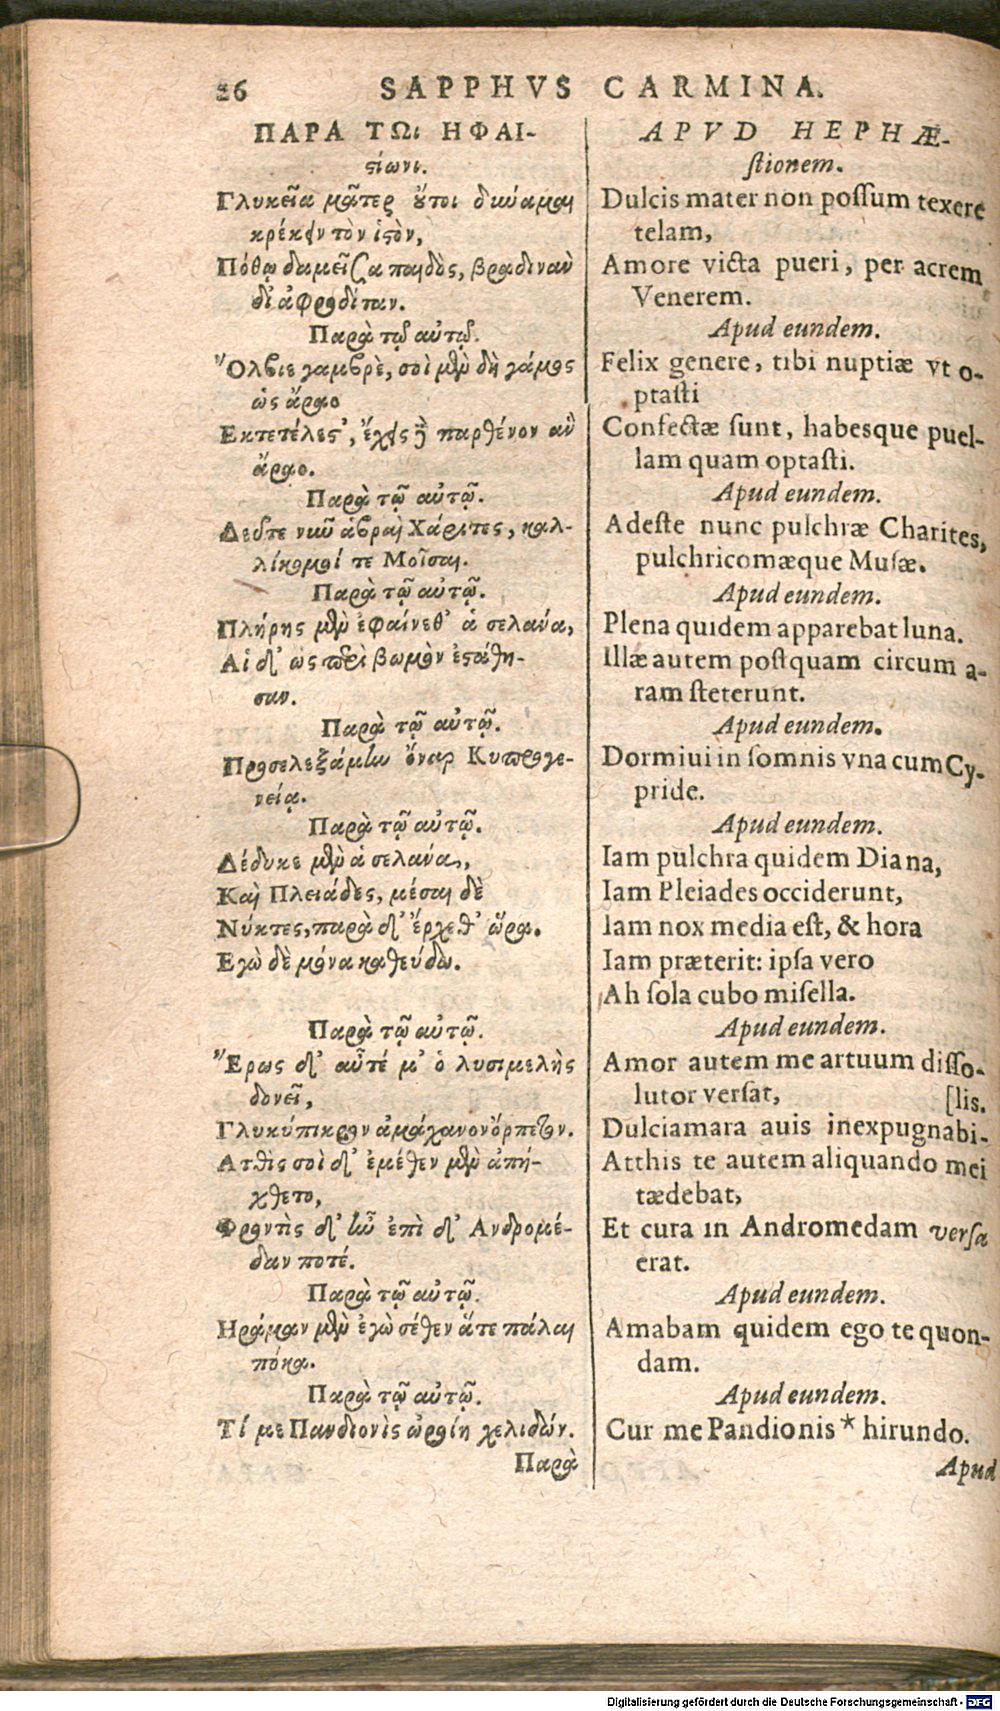 26 SAPPHVS CARMINA.
ΠΑΡΑ ΤΩι ΗΦΑΙ-
ςίωνι.
Γλυκεῖα μᾶτερ οὔτοι δύναμαι
κρέκειν τὸν ἱςὸν,
Πόθῳ δαμεῖσα παιδὸς, βραδιναὺ
δι' ἀφροδίταν.
Παρὰ τῷ αὐτῷ.
Ὄλβιε γαμβρὲ, σοὶ μὲν δὴ γάμος
ὡς ἄραο
Εκτετέλες', ἔχεις δὲ παρθένον ἂν
ἄραο.
Παρὰ τῷ αὐτῷ.
Δεῦτε νιῦ ἁβραὶ Χάριτες, καλ-
λίκομοί τε Μοῖσαι.
Παρὰ τῷ αὐτῷ.
Πλήρης μὲν ἐφαίνεθ' ἁ σελανα,
Αἱ δ' ὡς περὶ βωμὸν ἐςάθη-
σαν.
Παρὰ τῷ αὐτῷ.
Προσελεξάμην ὄναρ Κυπρογε-
νείᾳ.
Παρὰ τῷ αὐτῷ.
Δέδυκε μὲν ἁ σελάνα,
Καὶ Πλειάδες, μέσαι δὲ
Νύκτες, παρὰ δ' ἔρχεθ' ὥρα.
Εγὼ δὲ μόνα καθεύδω.
Παρὰ τῷ αὐτῷ.
Ἔρως δ' αὖτέ μ' ὁ λυσιμελὴς
δονεῖ,
Γλυκύπικρον ἀμάχανον ὄρπετον.
Ατθὶς σοὶ δ' ἐμέθεν μὲν ἀπή-
χθετο,
Φροντὶς δ' ἦν ἐπὶ δ' Ανδρομέ-
δαν ποτέ.
Παρὰ τῷ αὐτῷ.
Ηράμαν μὲν ἐγὼ σέθεν ἅτε πάλαι
πόκα.
Παρὰ τῷ αὐτῷ.
Τί με Πανδιονὶς ὠροίη χελιδών.
Παρὰ
APVD HEPHÆ-
ſtionem.
Dulcis mater non poſſum texere
telam,
Amore victa pueri, per acrem
Venerem.
Apud eundem.
Felix genere, tibi nuptiæ vt o-
ptaſti
Confectæ ſunt, habesque puel-
lam quam optaſti.
Apud eundem.
Adeſte nunc pulchræ Charites,
pulchricomæque Muſæ.
Apud eundem.
Plena quidem apparebat luna.
Illæ autem poſtquam circum a-
ram ſteterunt.
Apud eundem.
Dormiui in ſomnis vna cum Cy-
pride.
Apud eundem.
Iam pulchra quidem Diana,
Iam Pleiades occiderunt,
Iam nox media eſt, & hora
Iam præterit: ipſa vero
Ah ſola cubo miſella.
Apud eundem.
Amor autem me artuum diſſo-
lutor verſat, [lis.
Dulciamara auis inexpugnabi-
Atthis te autem aliquando mei
tædebat,
Et cura in Andromedam verſa
erat.
Apud eundem.
Amabam quidem ego te quon-
dam.
Apud eundem.
Cur me Pandionis * hirundo.
Apud
Digitalisierung gefördert durch die Deutsche Forschungsgemeinschaft - DFG